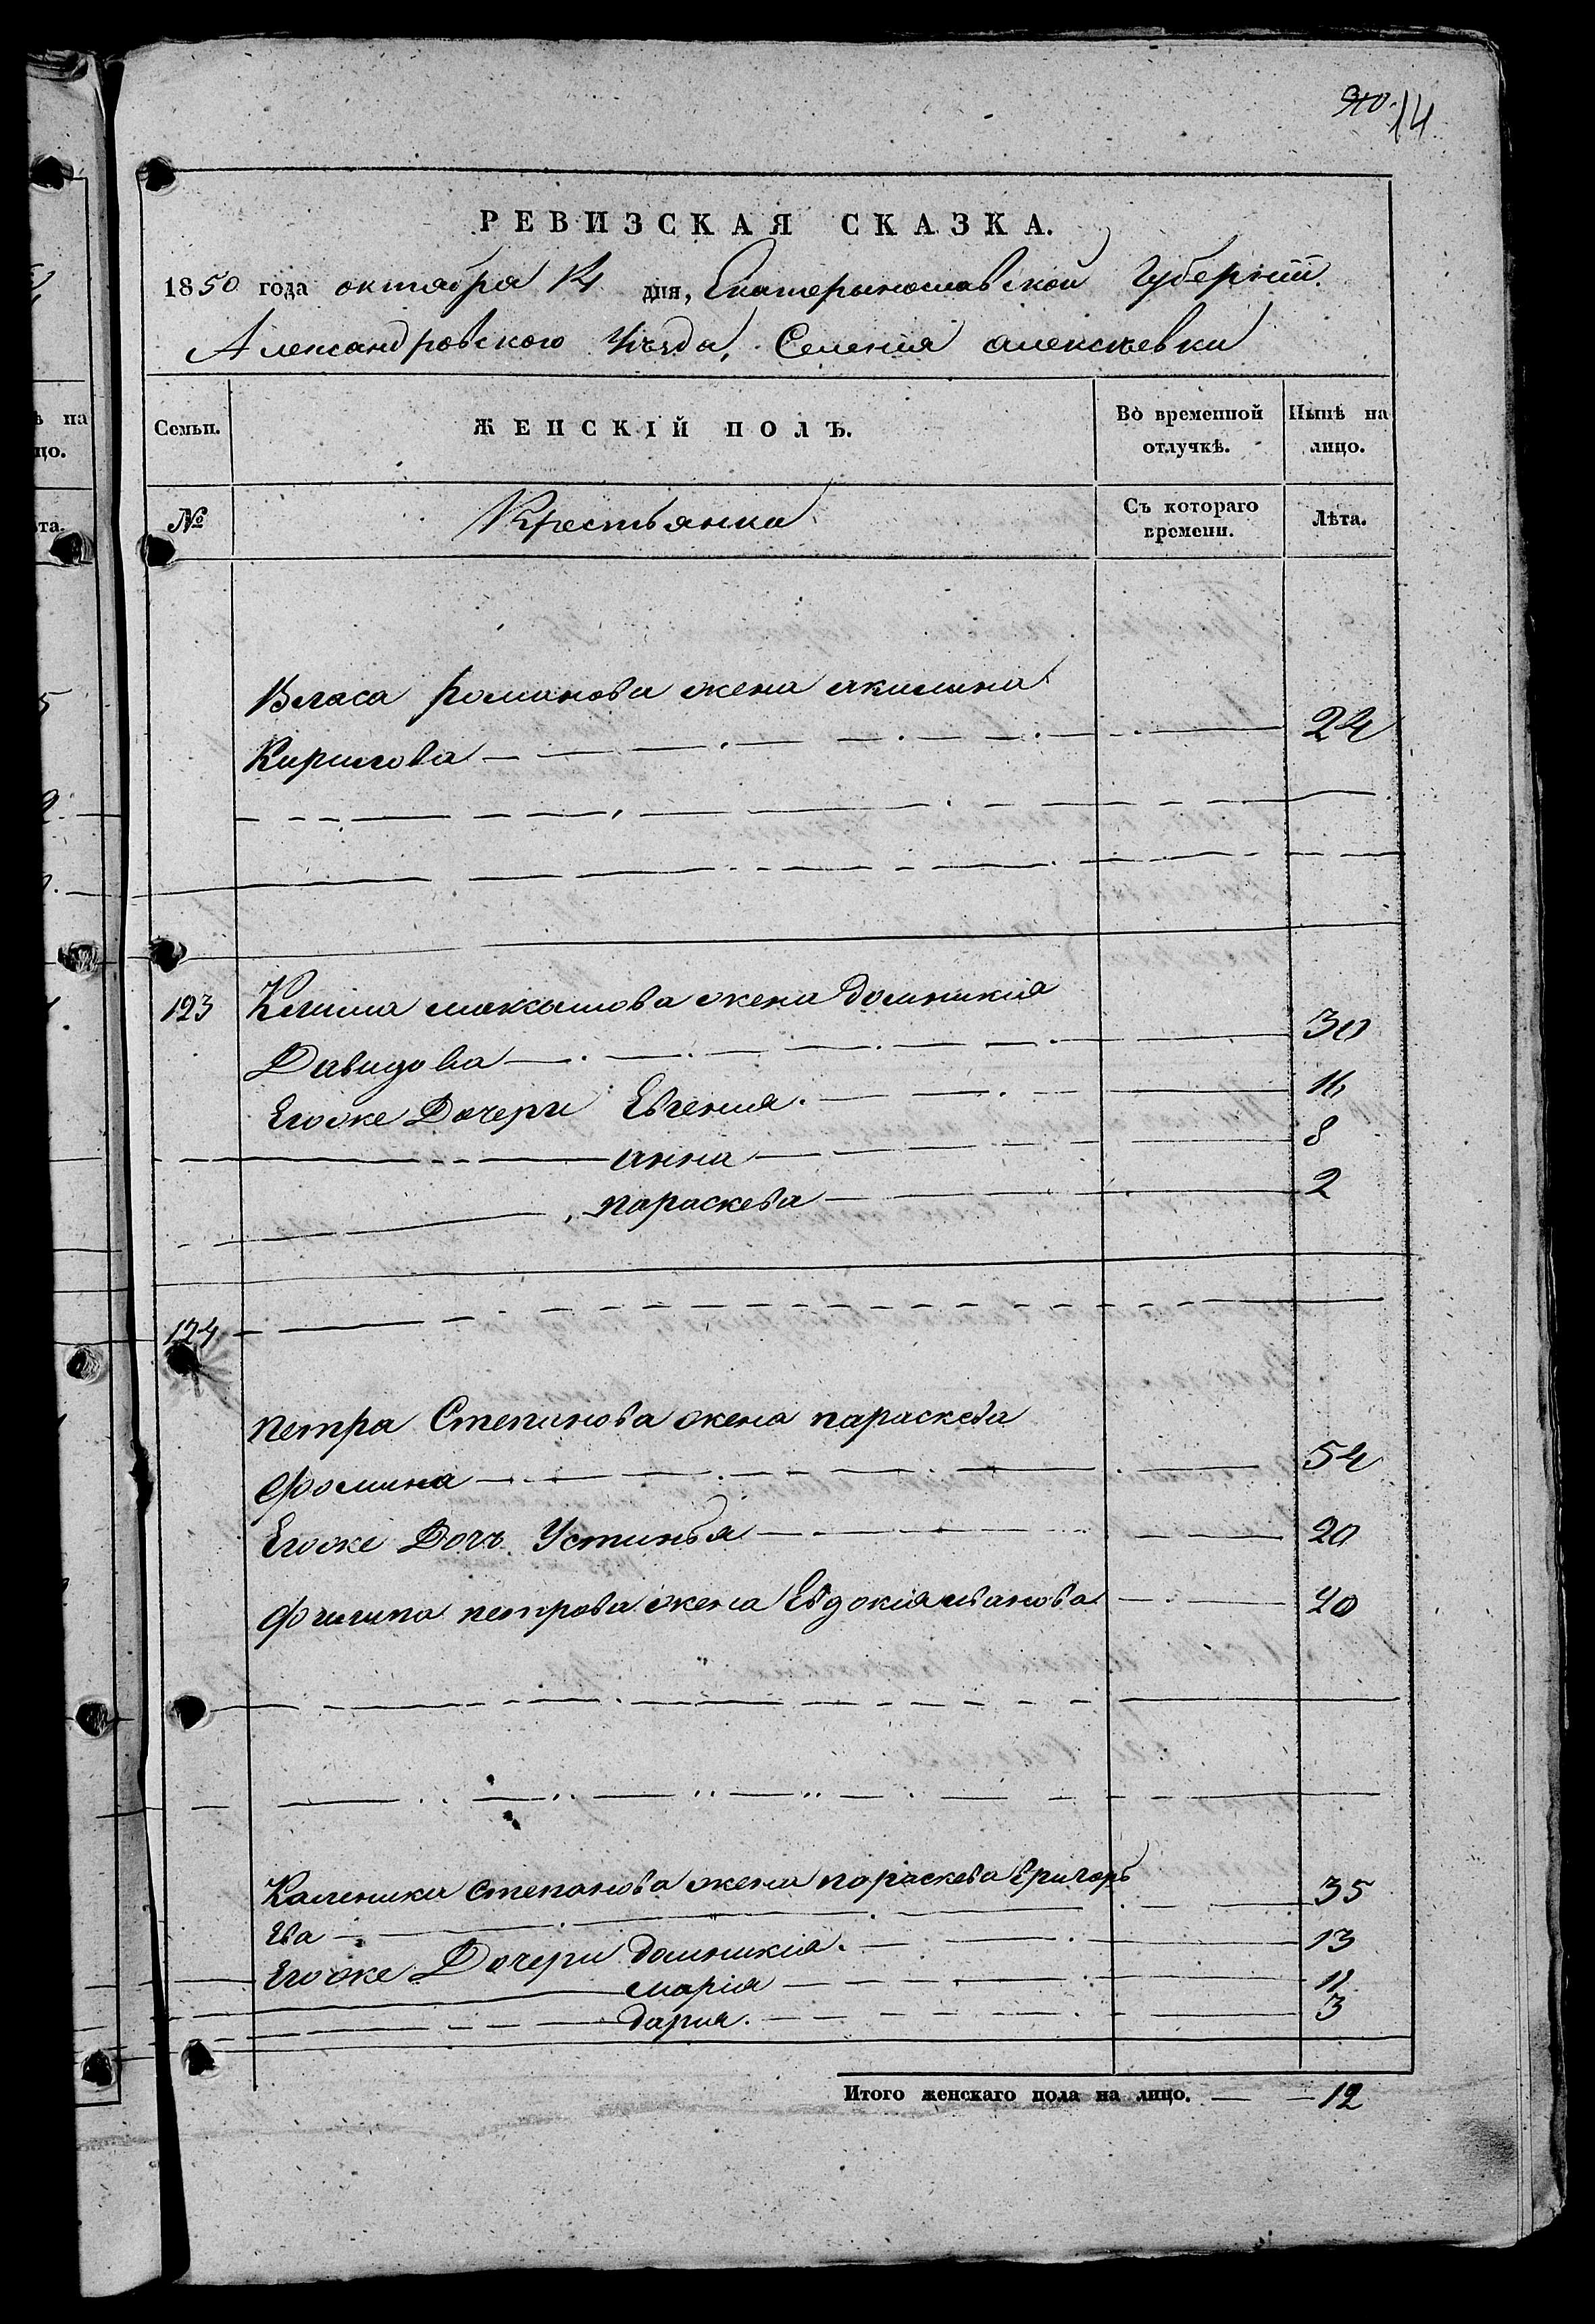 14
РЕВИЗСКАЯ СКАЗКА.
1850 года октября дня, Екатериннославской Губерніи.
Александровского Уѣзда, Селения алексѣевки
Семьи. ЖЕНСКІЙ ПОЛЪ. Во временной отлучкѣ. Нынѣ на лицо.
№ Крестьянки Съ котораго времени. Лѣта.
Власа романова жена акилина
Кирилова 24
123 Клима максимова жена домникия
Давидова 30
Егоже Дочери Евгения. 16
анна 8
параскева 2
124
петра Степанова жена параскева
фомина 54
Егоже Дочь Устинья 20
филипа петрова жена Евдокия иванова 20
Каленика степанова жена параскева Григорь
Ева 35
Егоже Дочери домникия. 13
мария 11
дария. 3
Итого женскаго пола на лицо. 12